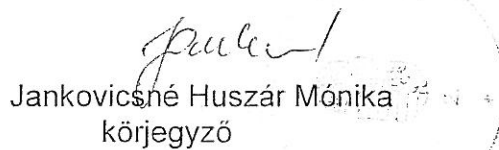 Jankovicsné Huszár Mónika
körjegyző